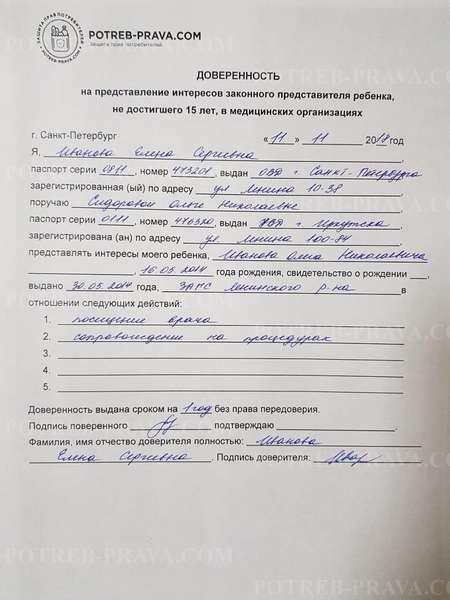 ЗАЩИТА ПРАВ ПОТРЕБИТЕЛЕЙ
POTREB-PRAVA.COM
POTREB-PRAVA.COM
Защита прав потребителей
ДОВЕРЕННОСТЬ
на представление интересов законного представителя ребенка,
не достигшего 15 лет, в медицинских организациях
г. Санкт-Петербург «11» 11 2018 год
Я, Иванова Елена Сергиевна,
паспорт серии 0811, номер 473201, выдан ОВД г Санкт-Петербурга
зарегистрированная (ый) по адресу ул Ленина 10-38
поручаю Сидоровой Ольге Николаевне,
паспорт серии 0111, номер 476520, выдан г Иркутска
зарегистрирована (ан) по адресу ул Ленина 100-84
представлять интересы моего ребенка, Иванова Николаевича
, 16.05.2014 года рождения, свидетельство о рождении ,
выдано 30.05.2014 года, ЗАГС Ленинского р-на в
отношении следующих действий:
1. посещение врача
2. сопровождение на процедурах
3.
4.
5.
Доверенность выдана сроком на 1 год без права передоверия.
Подпись поверенного подтверждаю
Фамилия, имя отчество доверителя полностью: Иванова
Елена Сергиевна. Подпись доверителя:
POTREB-PRAVA.COM